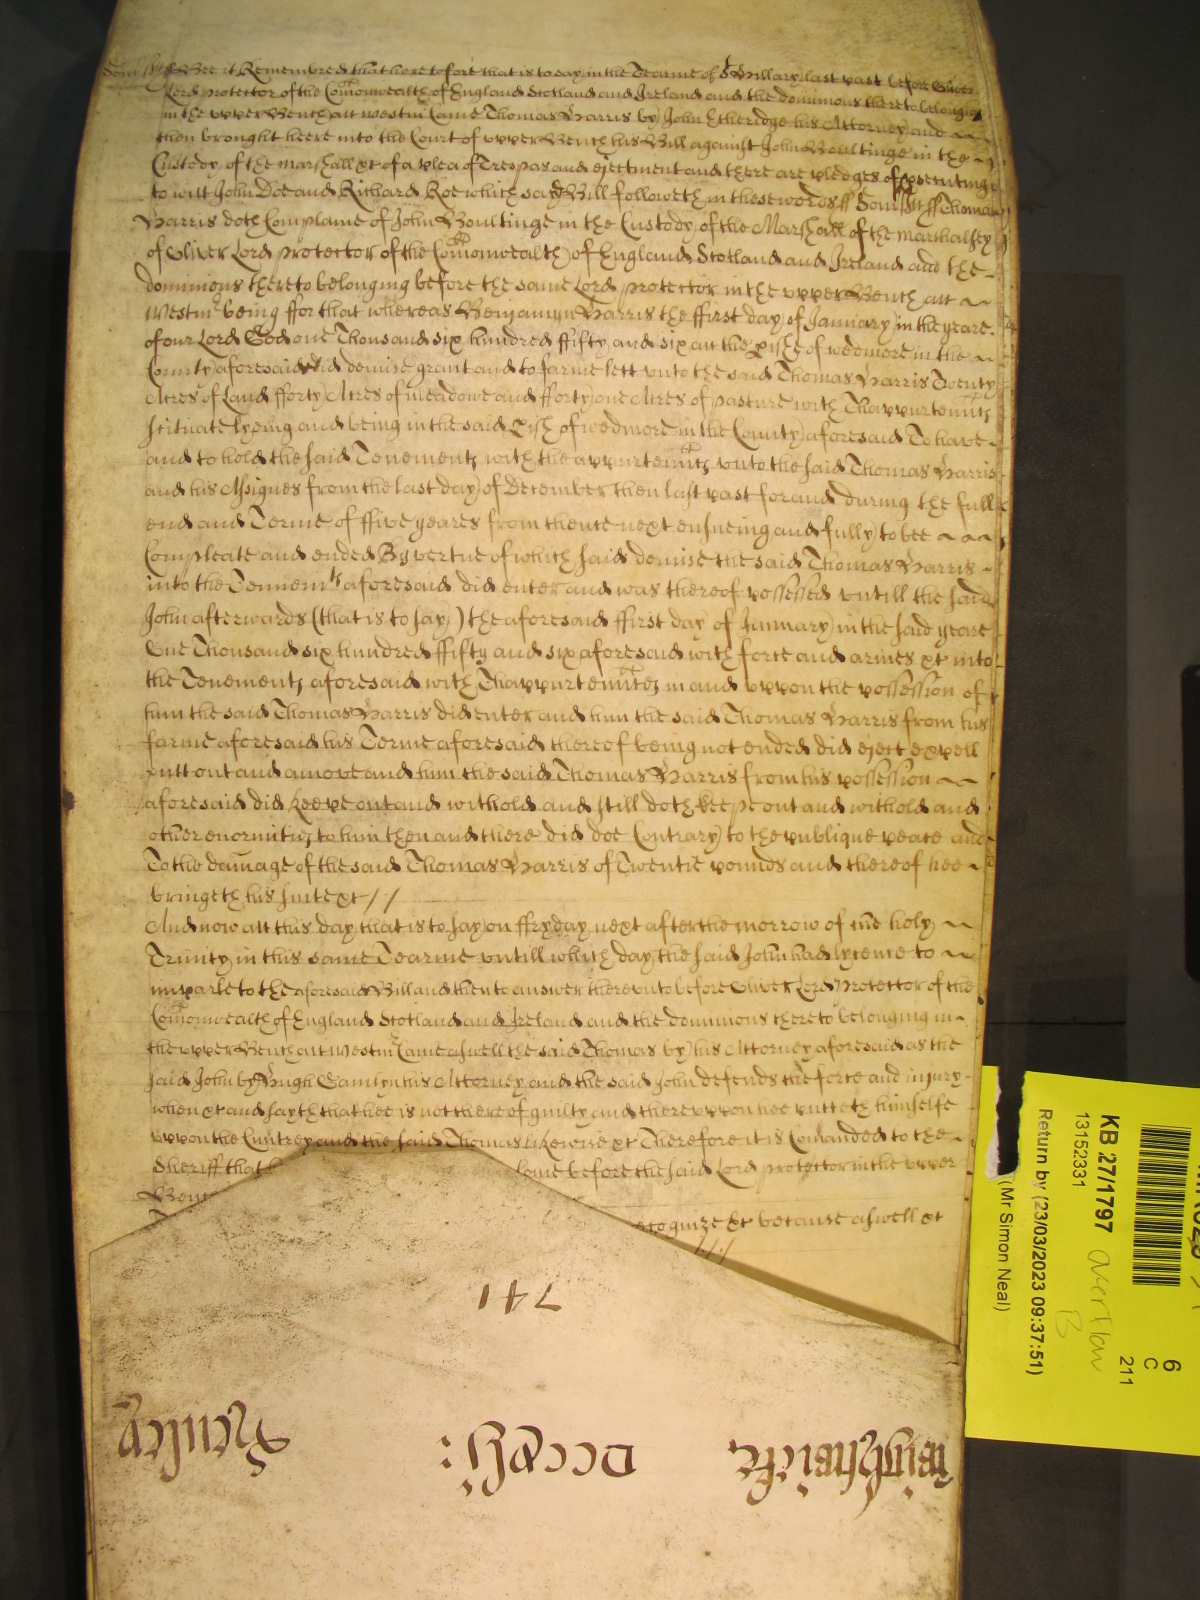 Somsett ss Bee it Remembred that heretofore that is to say in the Tearme of St Hillary last past before Oliver
Lord Protector of the Comonwealth of England Scotland and Ireland and the dominions thereto belonging
in the upper Bench att Westmr Came Thomas Harris by John Etheridge his Attorney and
then brought heere into the Court of upper Bench his Bill against John Boultinge in the
Custody of the marshall &c of a plea of Trespas and ejectment and there are pledges of prosecutinge
to witt John Doe and Richard Roe which said Bill followeth in these words ss Somsett ss Thomas
Harris doth Complaine of John Boultinge in the Custody of the Marshall of the marshalsey
of Oliver Lord Protector of the Comonwealth of England Scotland and Ireland and the
dominions thereto belonging before the same Lord Protector in the upper Bench att
Westmr being ffor that whereas Benjamyn Harris the ffirst day of January in the yeare
of our Lord God one Thousand six hundred ffifty and six att the pish of wedmore in the
County aforesaid did demise grant and to farme lett unto the said Thomas Harris Twenty
Acres of Land fforty Acres of meadowe and fforty one Acres of pasture with Thappurtenncs
scituate lyeing and being in the said pish of wedmore in the County aforesaid To have
and to hold the said Tenements with the appurtenncs unto the said Thomas Harris
and his Assignes from the last day of December then last past for and during the full
end and Terme of ffive yeares from thence next ensueing and fully to bee
Compleate and ended By vertue of which said demise the said Thomas Harris
into the Tennemts aforesaid did enter and was thereof possessed untill the said
John afterwards (that is to say) the aforesaid ffirst day of January in the said yeare
One Thousand six hundred ffifty and six aforesaid with force and armes &c into
the Tenements aforesaid with Thappurtenncs in and uppon the possession of
him the said Thomas Harris did enter and him the said Thomas Harris from his
farme aforesaid his Terme aforesaid thereof being not ended did eject expell
putt out and amove and him the said Thomas Harris from his possession
aforesaid did keepe out and withold and still doth keepe out and withold and
other enormities to him then and there did doe Contrary to the publique peace and
To the damage of the said Thomas Harris of Twentie pounds and thereof hee
bringeth his suite &c //
And now att this day that is to say on ffryday next after the morrow of the holy
Trinity in this same Tearme untill which day the said John had lycence to
imparle to the aforesaid Bill and then to answer thereunto before Oliver Lord Protector of the
Comonwealth of England Scotland and Ireland and the dominions thereto belonging in
the upper Bench att Westmr Came aswell the said Thomas by his Attorney aforesaid as the
said John by Hugh Gamlyn his Attorney and the said John defends the force and injury
when &c and sayth that hee is not thereof guilty and thereuppon hee putteth himselfe
uppon the Cuntrey and the said Thomas likewise &c Therefore it is Comanded to the
Sheriff that come before the said Lord protector in the upper
Benc
recognize &c because aswell &c
///
741
KB 27/1797
13152331
Return by (23/03/2023 09:37:51)
(Mr Simon Neal)
overflow
B
6
C
211